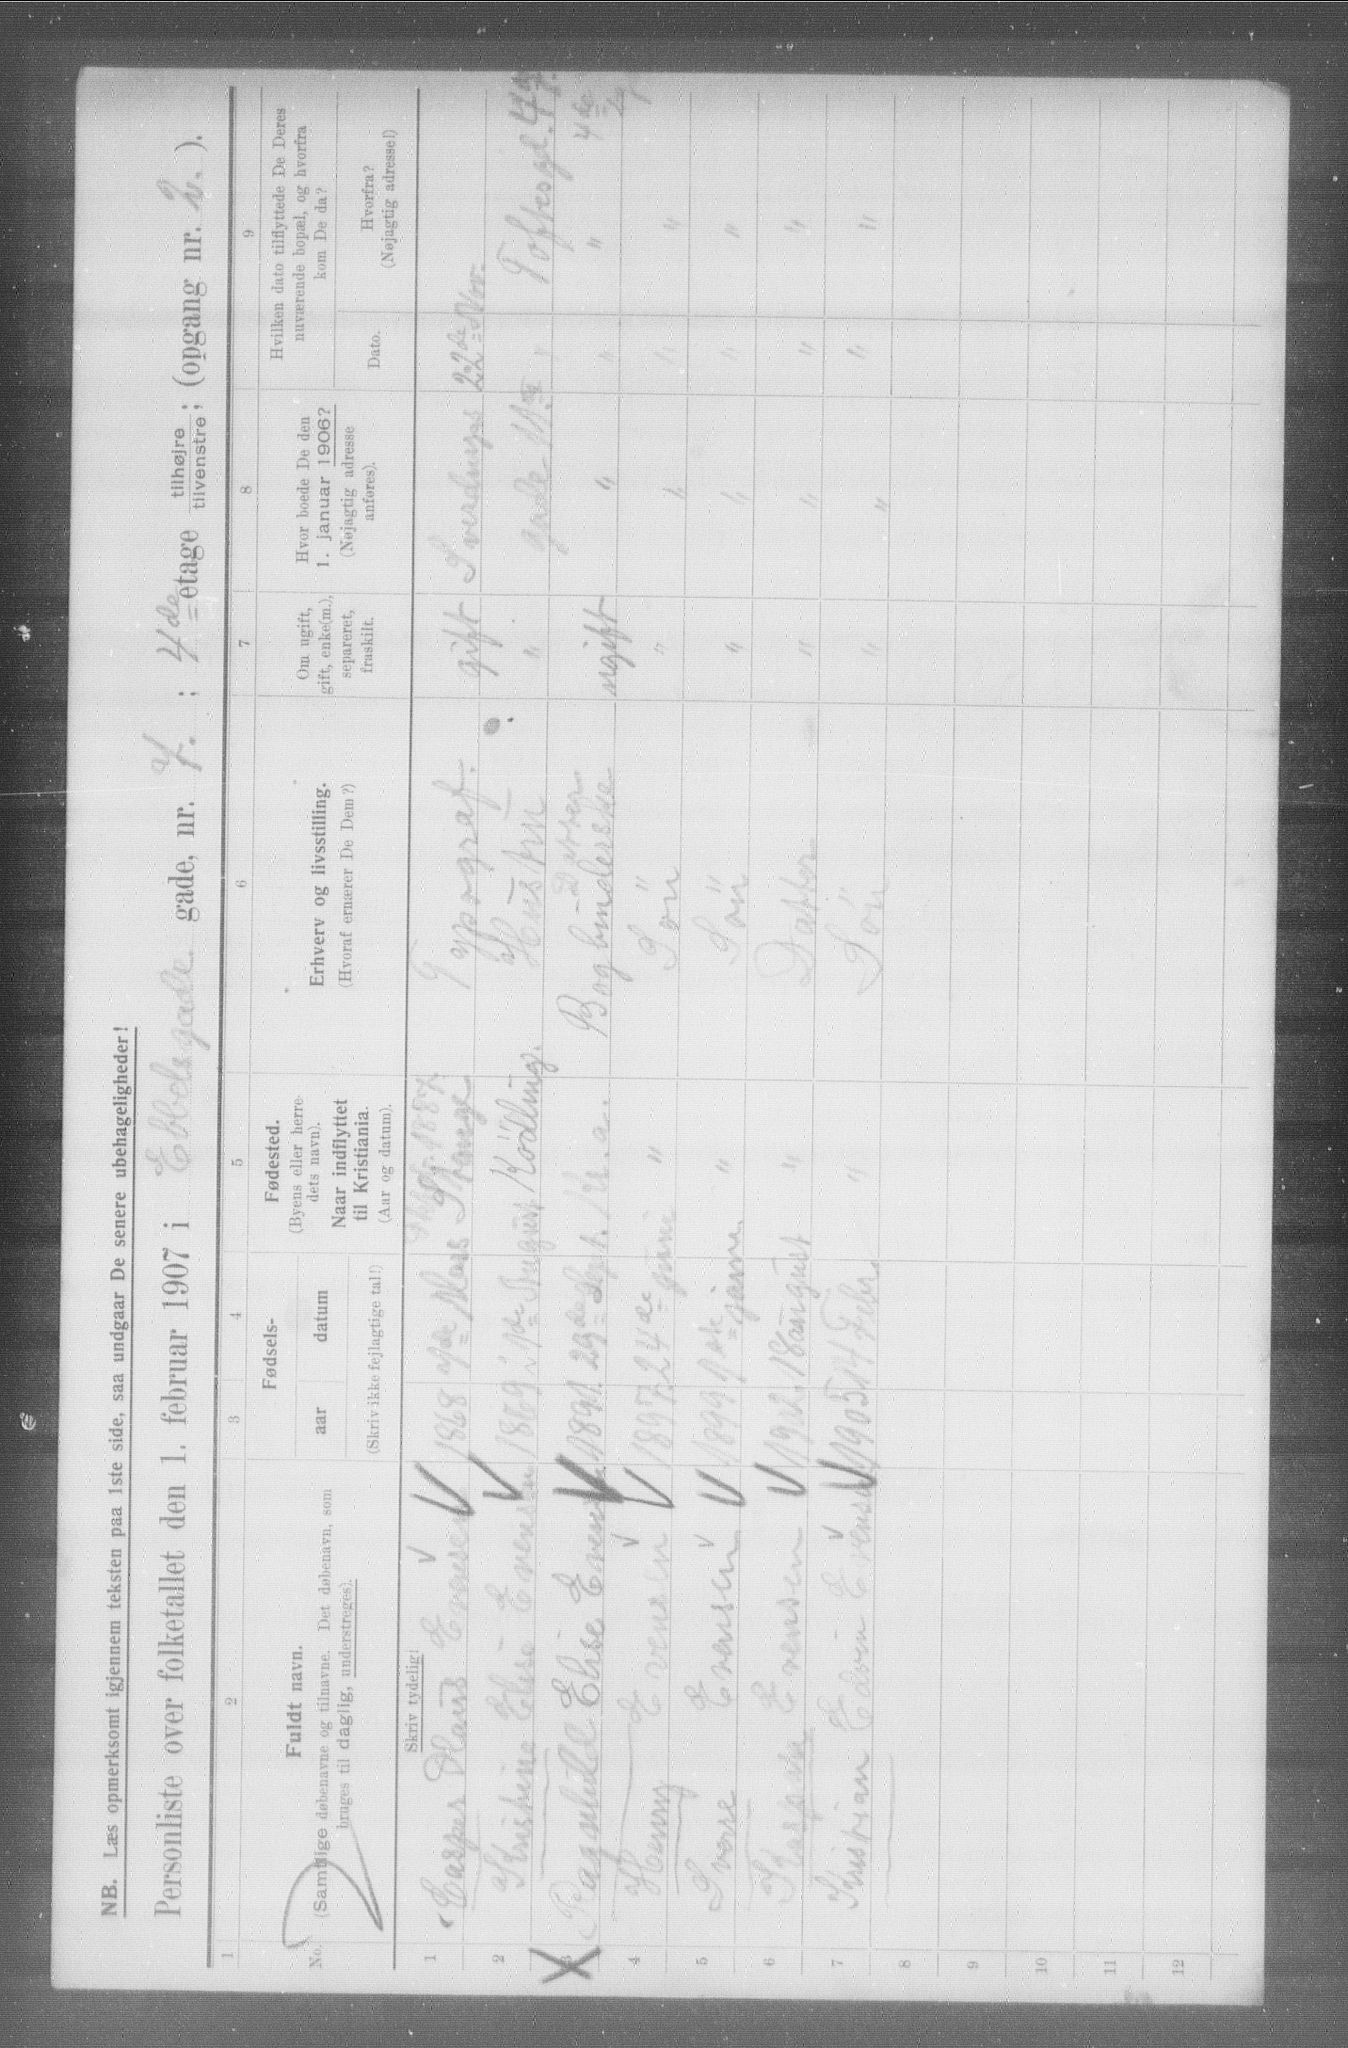 NB. Læs opmerksomt igjennem teksten paa 1ste side, saa undgaar De senere ubehageligheder!
Personliste over folketallet den 1. februar 1907 i Ebbelsgade gade, nr. 7. ; 4de etage tilhøjre tilvenstre ; (opgang nr. 2. ).
1 2 3 4 5 6 7 8 9
No.
Fuldt navn.
(Samtlige døbenavne og tilnavne. Det døbenavn, som
bruges til daglig, understreges).
Skriv tydelig!
Fødsels-
aar datum
(Skriv ikke fejlagtige tal!)
Fødested.
(Byens eller herre-
dets navn).
Naar indflyttet
til Kristiania.
(Aar og datum).
Erhverv og livsstilling.
(Hvoraf ernærer De Dem?)
Om ugift,
gift, enke(m.),
separeret,
fraskilt.
Hvor boede De den
1. januar 1906?
(Nøjagtig adresse
anføres).
Hvilken dato tilflyttede De Deres
nuværende bopæl, og hvorfra
kom De da?
Dato.
Hvorfra?
(Nøjagtig adresse!)
1 Casper Hans Evensen 1868 7de Mars Stange 1887 Typograf. gift Sverdrups 22de Nov.
2 Kristine Elise Evensen 1869 1de August Rödling. Hustru " gade 11 " Toftesgd.
3 Ragnhild Elise Evensen 1891. 29de Sept. Kr.a. Datter Bogbinderske ugift " " " 4de
4 Henry Evensen 1897 24de juni " Sön " " " "
5 Svare Evensen 1899 janu. " Sön " " " "
6 Evensen 1902 18 august " Datter " " " "
7 Kristian Edvin Evensen 1905 14 Febr. " Sön " " " "
8
9
10
11
12